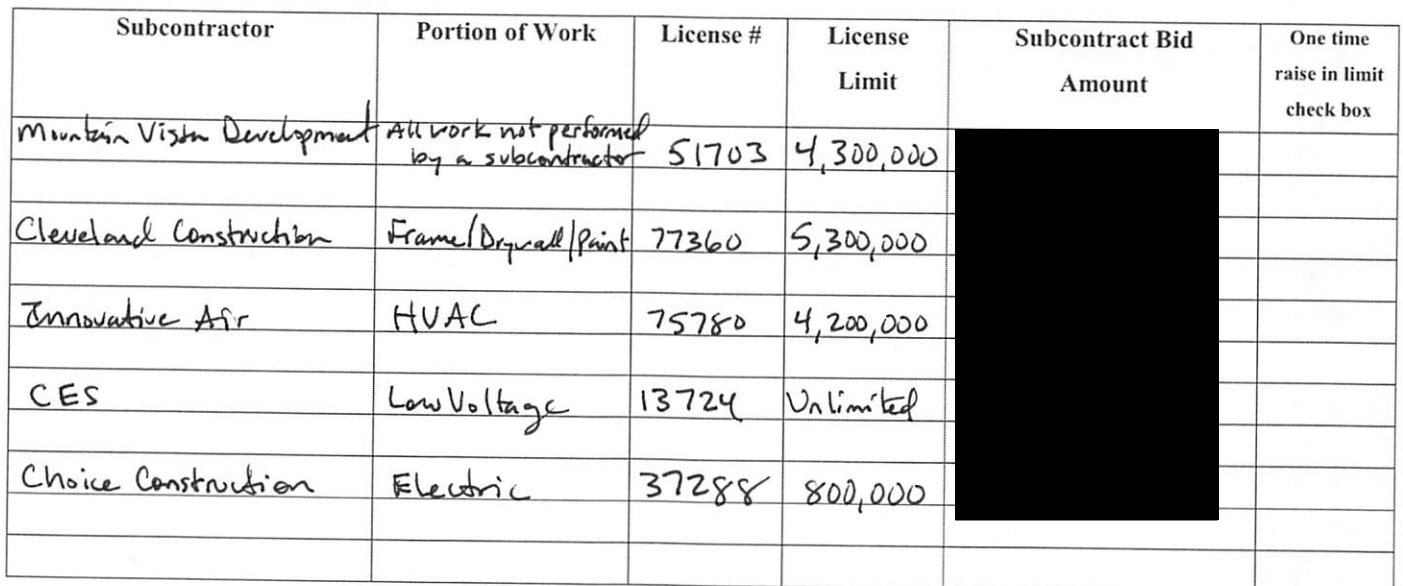 Subcontractor Portion of Work License # License Limit Subcontract Bid Amount One time raise in limit check box
Mountain Vista Development All work not performed by a subcontractor 51703 4,300,000
Cleveland Construction Frame/Drywall/Paint 77360 5,300,000
Innovative Air HVAC 75780 4,200,000
CES Low Voltage 13724 Unlimited
Choice Construction Electric 37288 800,000